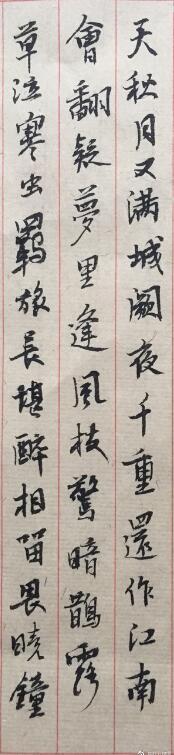 天秋月又满城阙夜千重還作江南
會翻疑夢里逢風枝驚暗鵲露
草泣寒虫羁旅長堪醉相留畏曉鐘